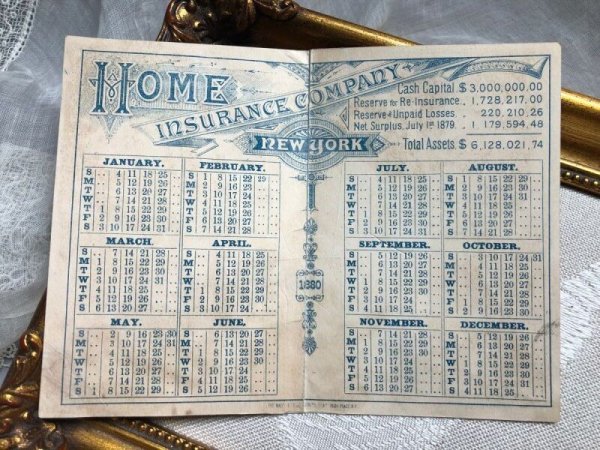 HOME
INSURANCE COMPANY
NEW YORK
Cash Capital $ 3,000,000.00
Reserve for Re-Insurance.. 1,728,217.00
Reserve for Unpaid Losses.. 220,210.26
Net Surplus, July 1st 1879.. 1,179,594.48
Total Assets $ 6,128,021.74
JANUARY.
S 4 11 18 25
M 5 12 19 26
T 6 13 20 27
W 7 14 21 28
T 1 8 15 22 29
F 2 9 16 23 30
S 3 10 17 24 31
FEBRUARY.
S 1 8 15 22 29
M 2 9 16 23
T 3 10 17 24
W 4 11 18 25
T 5 12 19 26
F 6 13 20 27
S 7 14 21 28
MARCH.
S 7 14 21 28
M 1 8 15 22 29
T 2 9 16 23 30
W 3 10 17 24 31
T 4 11 18 25
F 5 12 19 26
S 6 13 20 27
APRIL.
S 4 11 18 25
M 5 12 19 26
T 6 13 20 27
W 7 14 21 28
T 1 8 15 22 29
F 2 9 16 23 30
S 3 10 17 24
MAY.
S 2 9 16 23 30
M 3 10 17 24 31
T 4 11 18 25
W 5 12 19 26
T 6 13 20 27
F 7 14 21 28
S 1 8 15 22 29
JUNE.
S 6 13 20 27
M 7 14 21 28
T 1 8 15 22 29
W 2 9 16 23 30
T 3 10 17 24
F 4 11 18 25
S 5 12 19 26
1880
JULY.
S 4 11 18 25
M 5 12 19 26
T 6 13 20 27
W 7 14 21 28
T 1 8 15 22 29
F 2 9 16 23 30
S 3 10 17 24 31
AUGUST.
S 1 8 15 22 29
M 2 9 16 23 30
T 3 10 17 24 31
W 4 11 18 25
T 5 12 19 26
F 6 13 20 27
S 7 14 21 28
SEPTEMBER.
S 5 12 19 26
M 6 13 20 27
T 7 14 21 28
W 1 8 15 22 29
T 2 9 16 23 30
F 3 10 17 24
S 4 11 18 25
OCTOBER.
S 3 10 17 24 31
M 4 11 18 25
T 5 12 19 26
W 6 13 20 27
T 7 14 21 28
F 1 8 15 22 29
S 2 9 16 23 30
NOVEMBER.
S 7 14 21 28
M 1 8 15 22 29
T 2 9 16 23 30
W 3 10 17 24
T 4 11 18 25
F 5 12 19 26
S 6 13 20 27
DECEMBER.
S 5 12 19 26
M 6 13 20 27
T 7 14 21 28
W 1 8 15 22 29
T 2 9 16 23 30
F 3 10 17 24 31
S 4 11 18 25